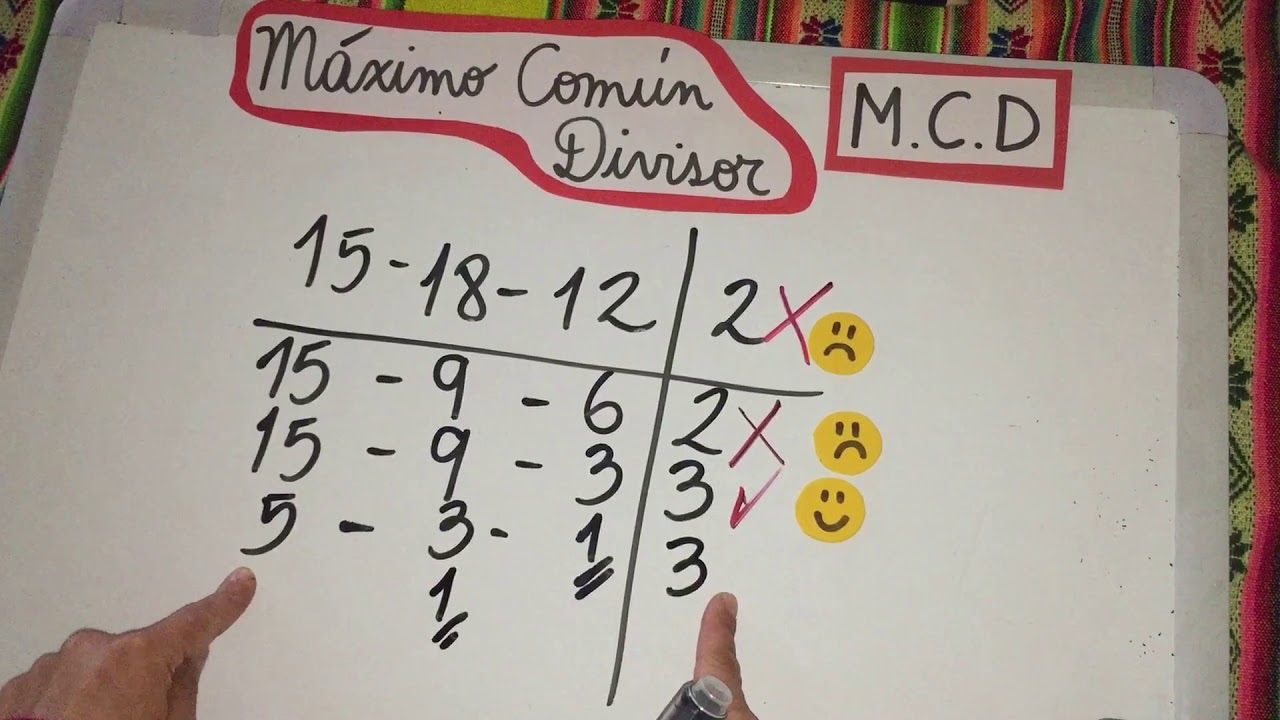 Máximo Común
Divisor
M.C.D
15-18-12 2X
15 - 9 - 6 2X
15 - 9 - 3 3✓
5 - 3 - 1 3
1